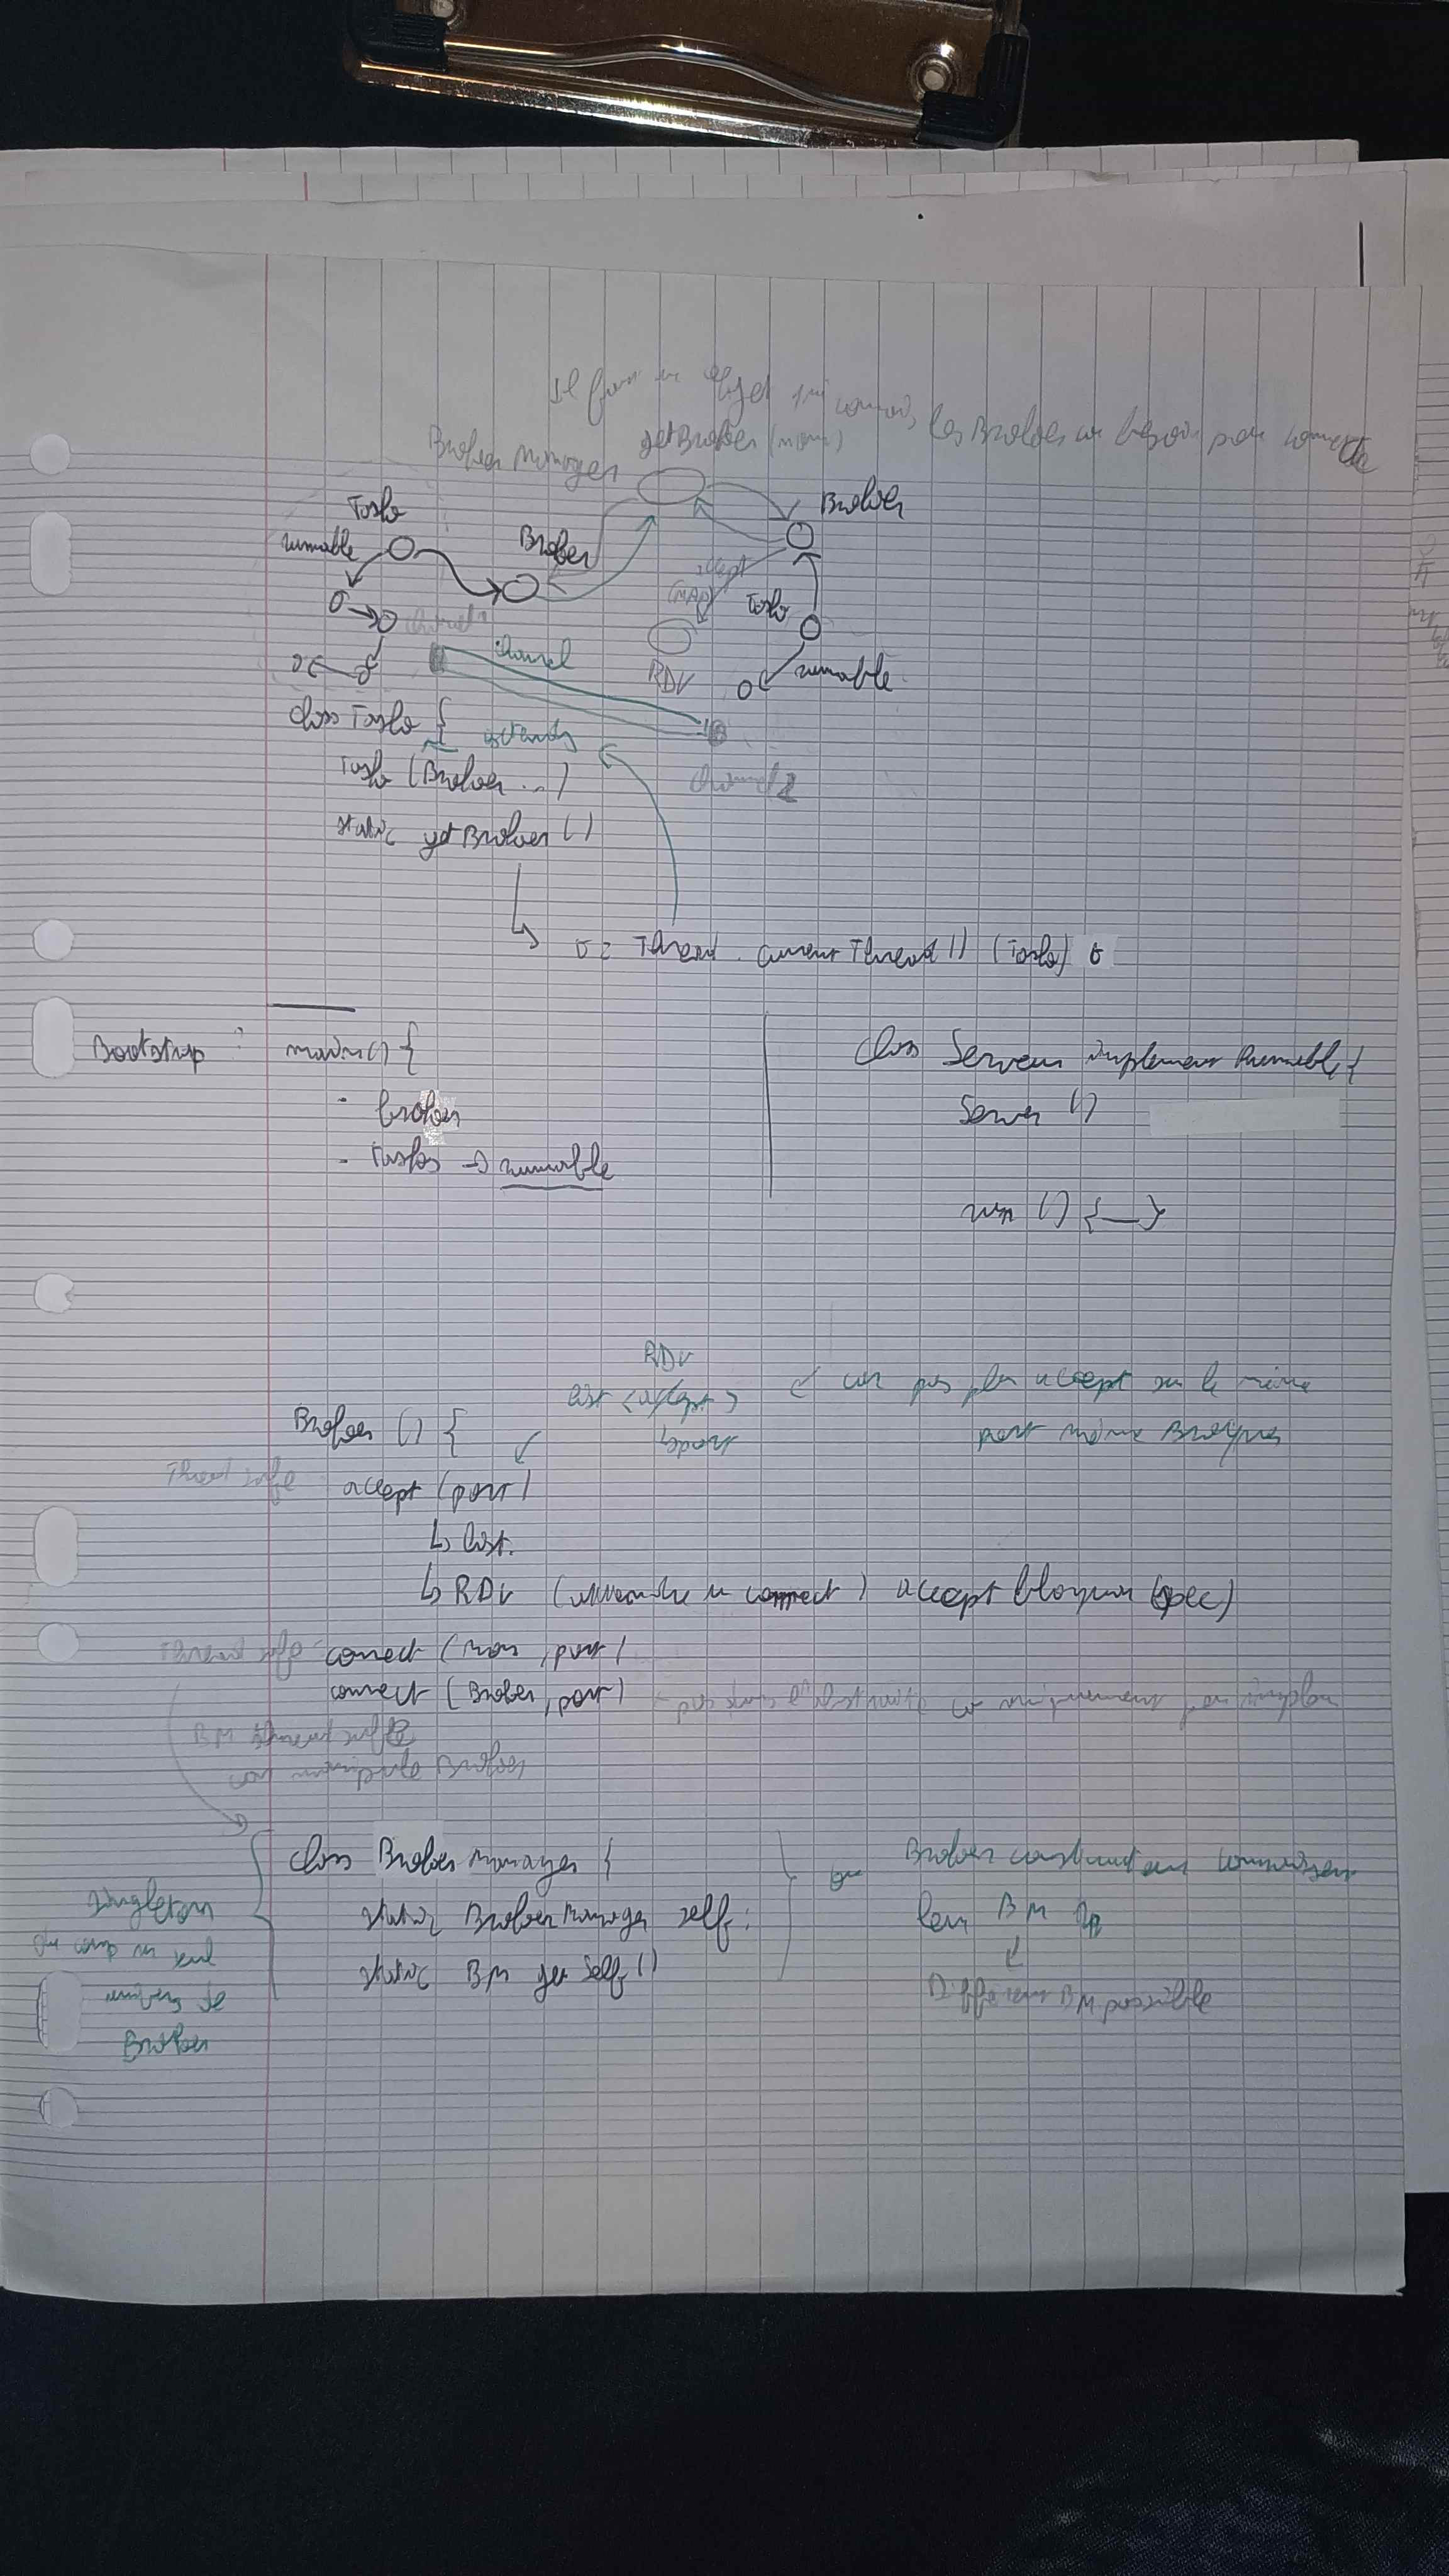 Il faut un objet qui connait les Brokers car besoin pour connecter
Broker Manager getBroker (nom)
Task
Broker
runnable
Broker
accept
(MAP)
Task
channel 1
channel
RDV
runnable
class Task { extends
Task (Broker ...)
channel 2
static getBroker ()
t = Thread . currentThread () (Task) t
Bootstrap : main() {
- broker
- Tasks → runnable
class Serveur implement Runnable {
Server ()
run () {__}
RDV
list <accept> ← car pas plrs accept sur le même
port même
Broker () {
Thread safe accept (port)
↳ list.
↳ RDV (attendre un connect) accept bloquant (spec)
Thread safe connect (nom, port)
connect (Broker, port) ←
BM thread safe
car Broker
class Broker Manager {
static Broker Manager self;
static BM getSelf ()
Singleton
un seul
Broker
ou Broker construit en connaissant
leur BM
↓
Different BM possible